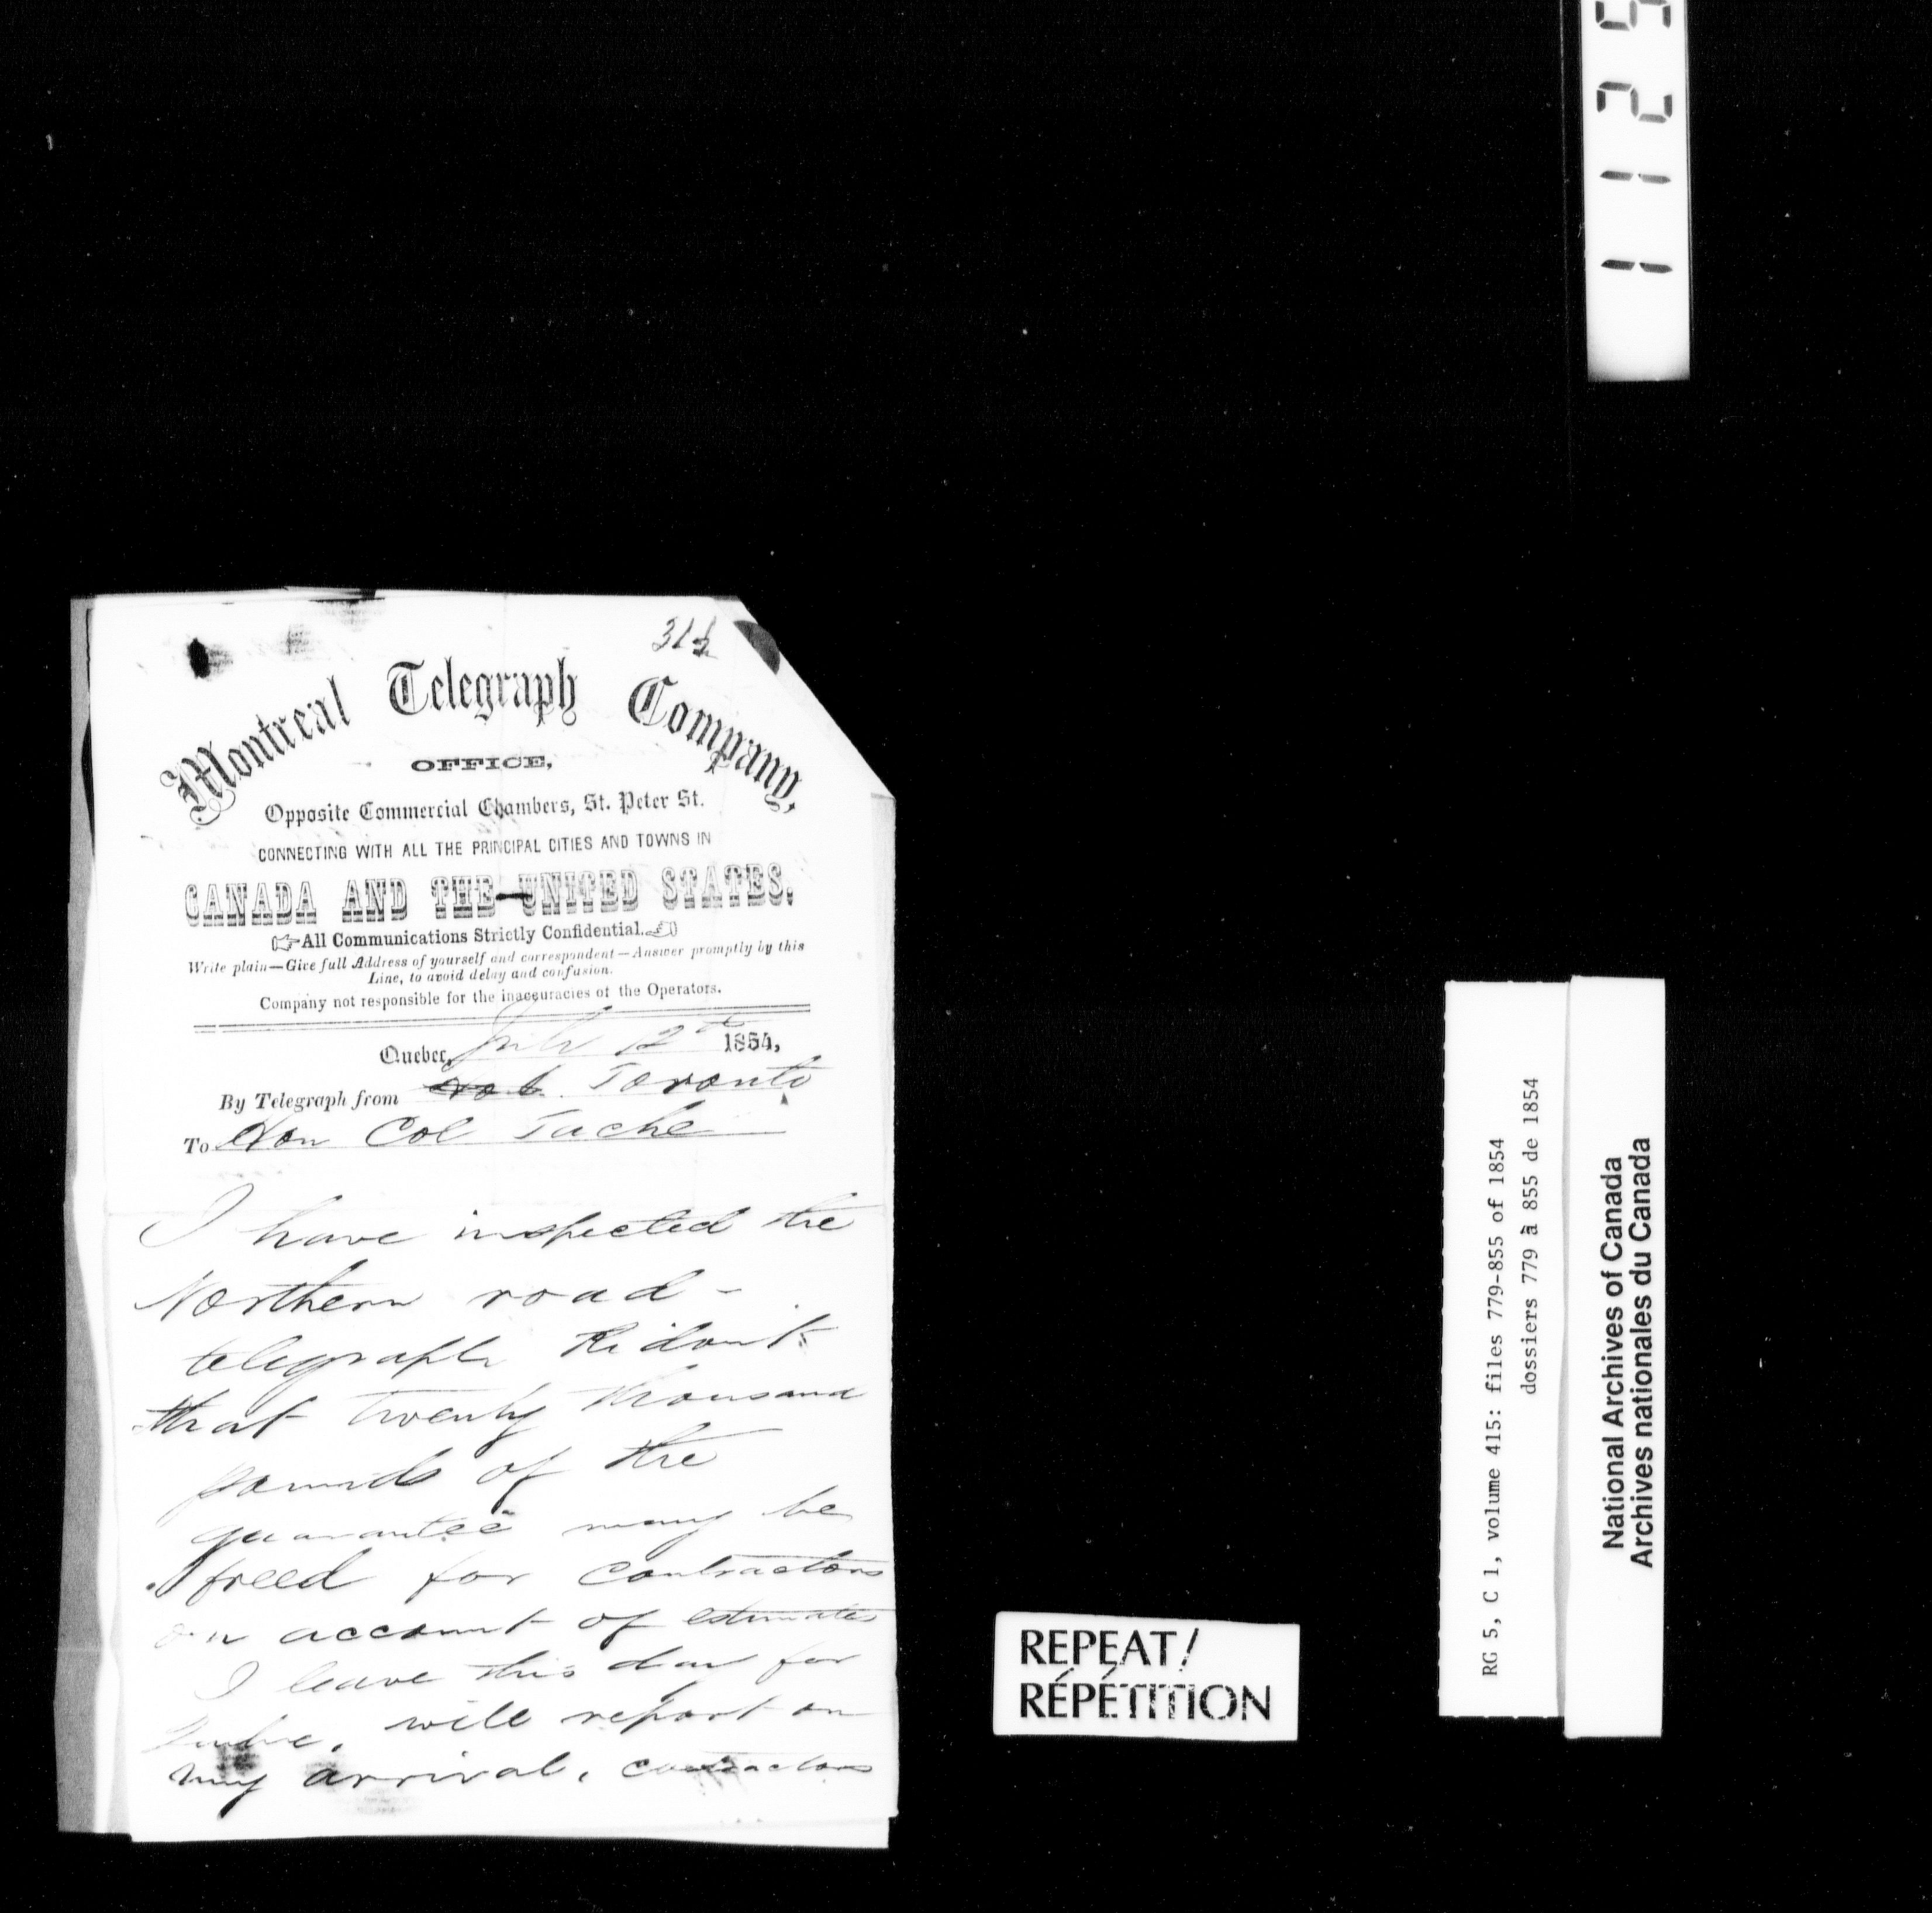 1 1 2 5
Montreal Telegraph Company,
OFFICE,
Opposite Commercial Chambers, St. Peter St.
CONNECTING WITH ALL THE PRINCIPAL CITIES AND TOWNS IN
CANADA AND THE UNITED STATES.
All Communications Strictly Confidential.
Write plain—Give full Address of yourself and correspondent—Answer promptly by this
Line, to avoid delay and confusion.
Company not responsible for the inaccuracies of the Operators.
Quebec, July 12th 1854,
By Telegraph from Toronto
To Hon Col Tache
I have inspected the
Northern road -
telegraph Ridout
that twenty thousand
pounds of the
guarantee may be
freed for contractors
on account of estimates
I leave this day for
will report on
my arrival, contractors
REPEAT/
RÉPÉTITION
RG 5, C 1, volume 415: files 779-855 of 1854
dossiers 779 à 855 de 1854
National Archives of Canada
Archives nationales du Canada